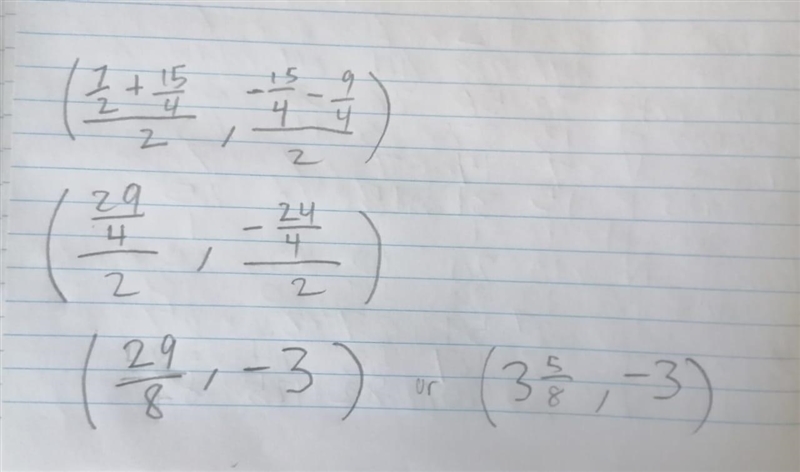 (7/2 + 15/4 / 2, -15/4 - 9/4 / 2)
(29/4 / 2, -24/4 / 2)
(29/8, -3) or (3 5/8, -3)